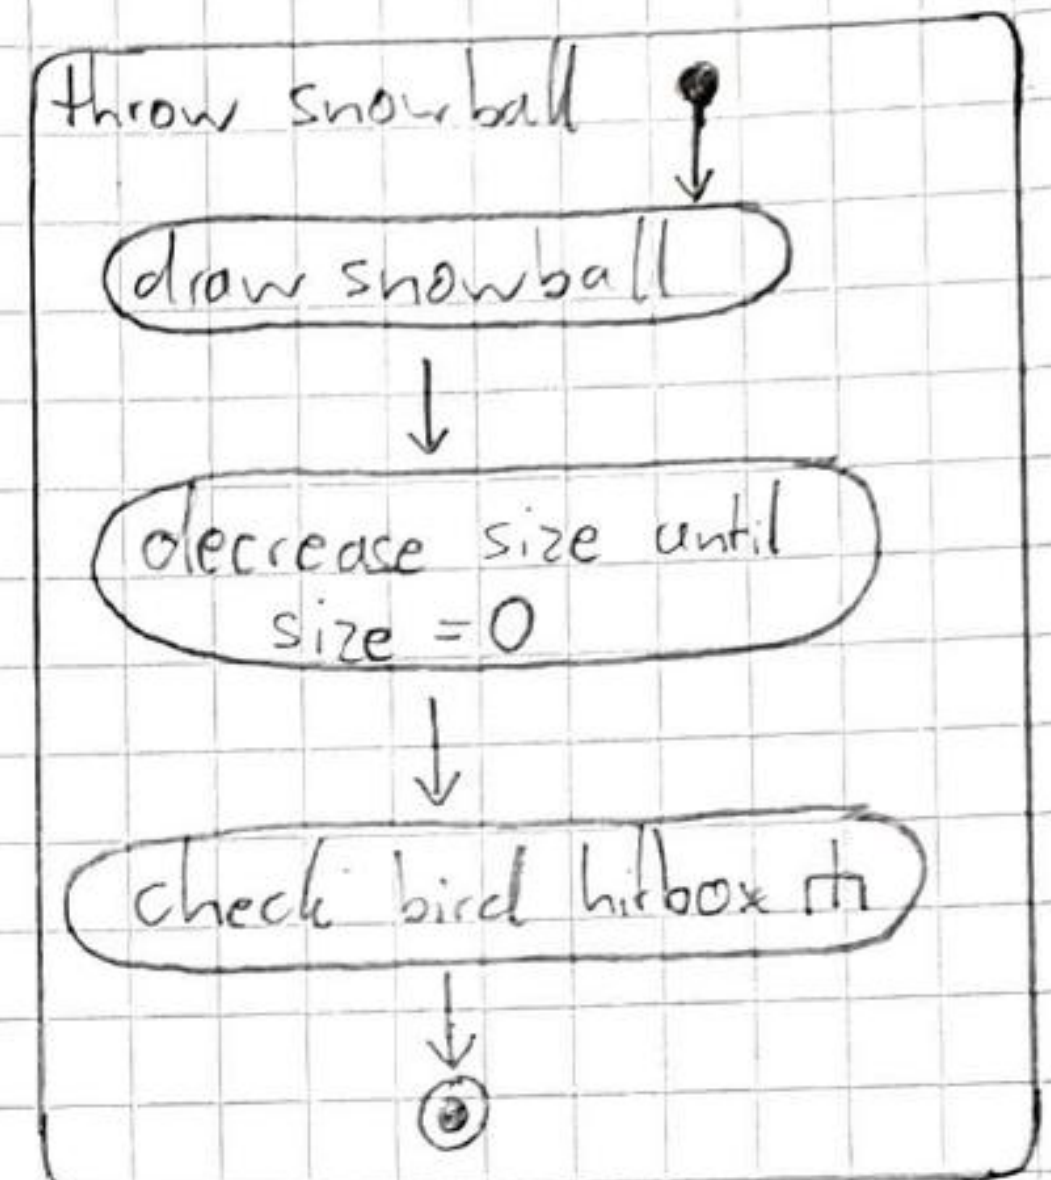 throw snowball
draw snowball
decrease size until
size = 0
check bird hitbox